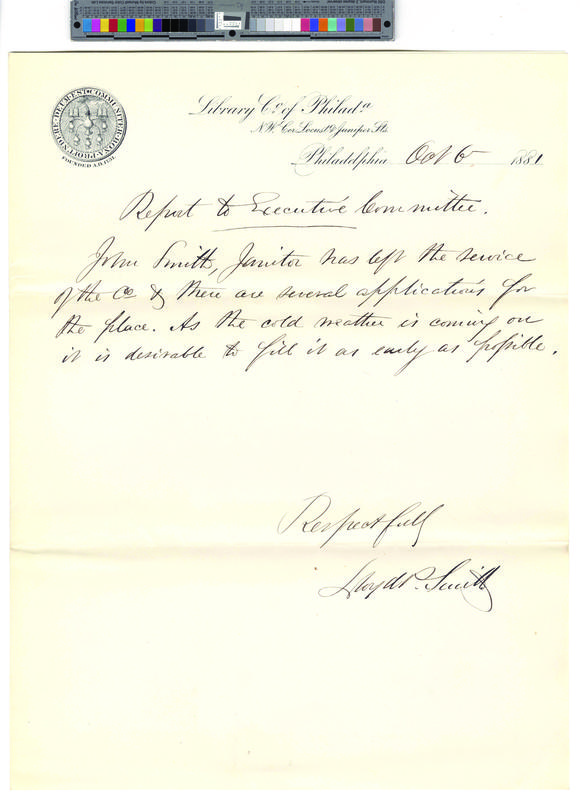 COMMUNITER BONA PROFUNDERE DEUM EST
FOUNDED A.D. 1731.
Library Co. of Philada.
N.W. Cor. Locust & Juniper Sts.
Philadelphia Oct 6 1881
Report to Executive Committee.
John Smith, Janitor has left the service
of the Co & there are several applications for
the place. As the cold weather is coming on
it is desirable to fill it as early as possible.
Respectfully
Lloyd P. Smith